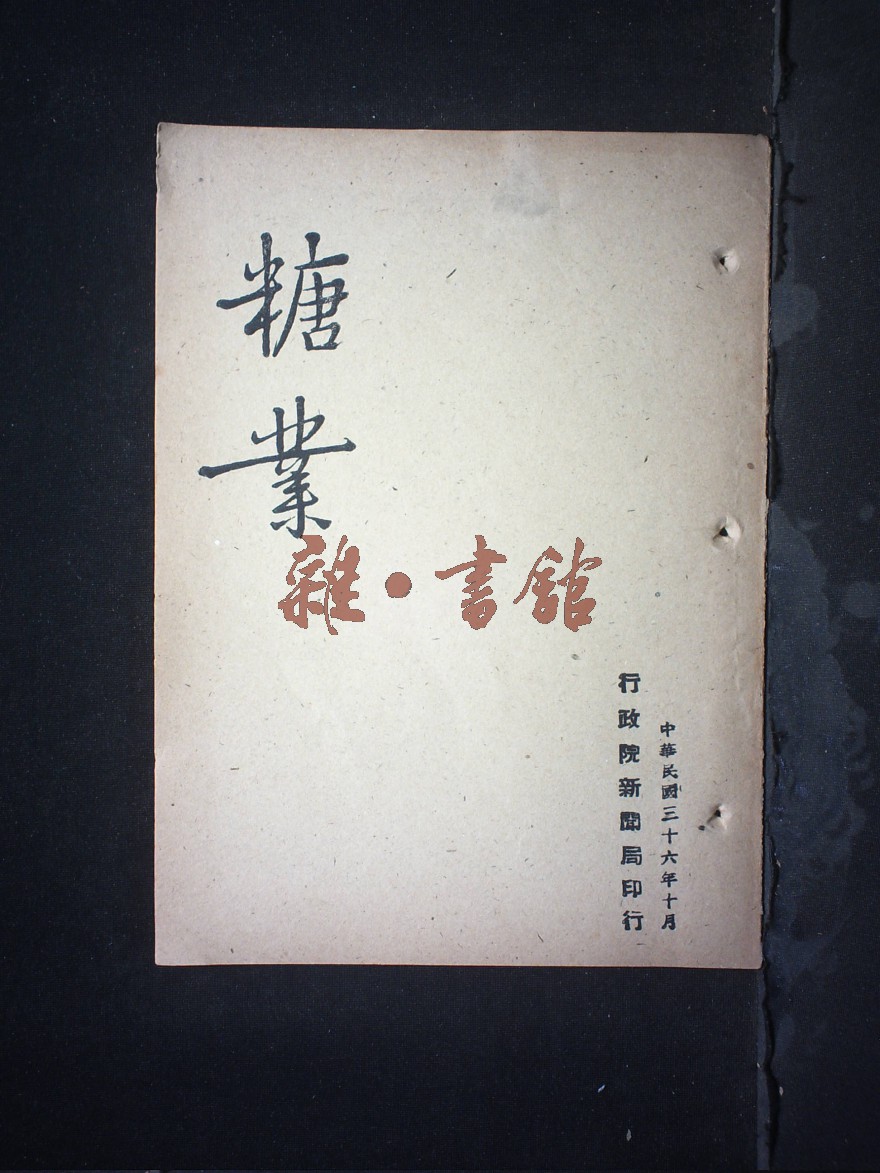 糖業
雜·書館
中華民國三十六年十月
行政院新聞局印行